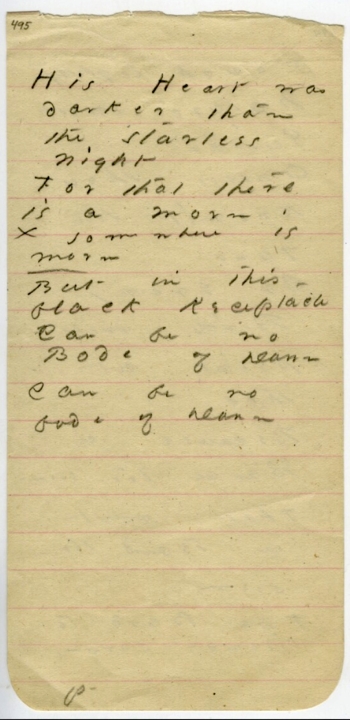 495
His Heart was
darker than
the starless
night
For that there
is a morn
X somewhere is
morn
But in this
black Receptacle
Can be no
Bode of Dawn
Can be no
bode of Dawn